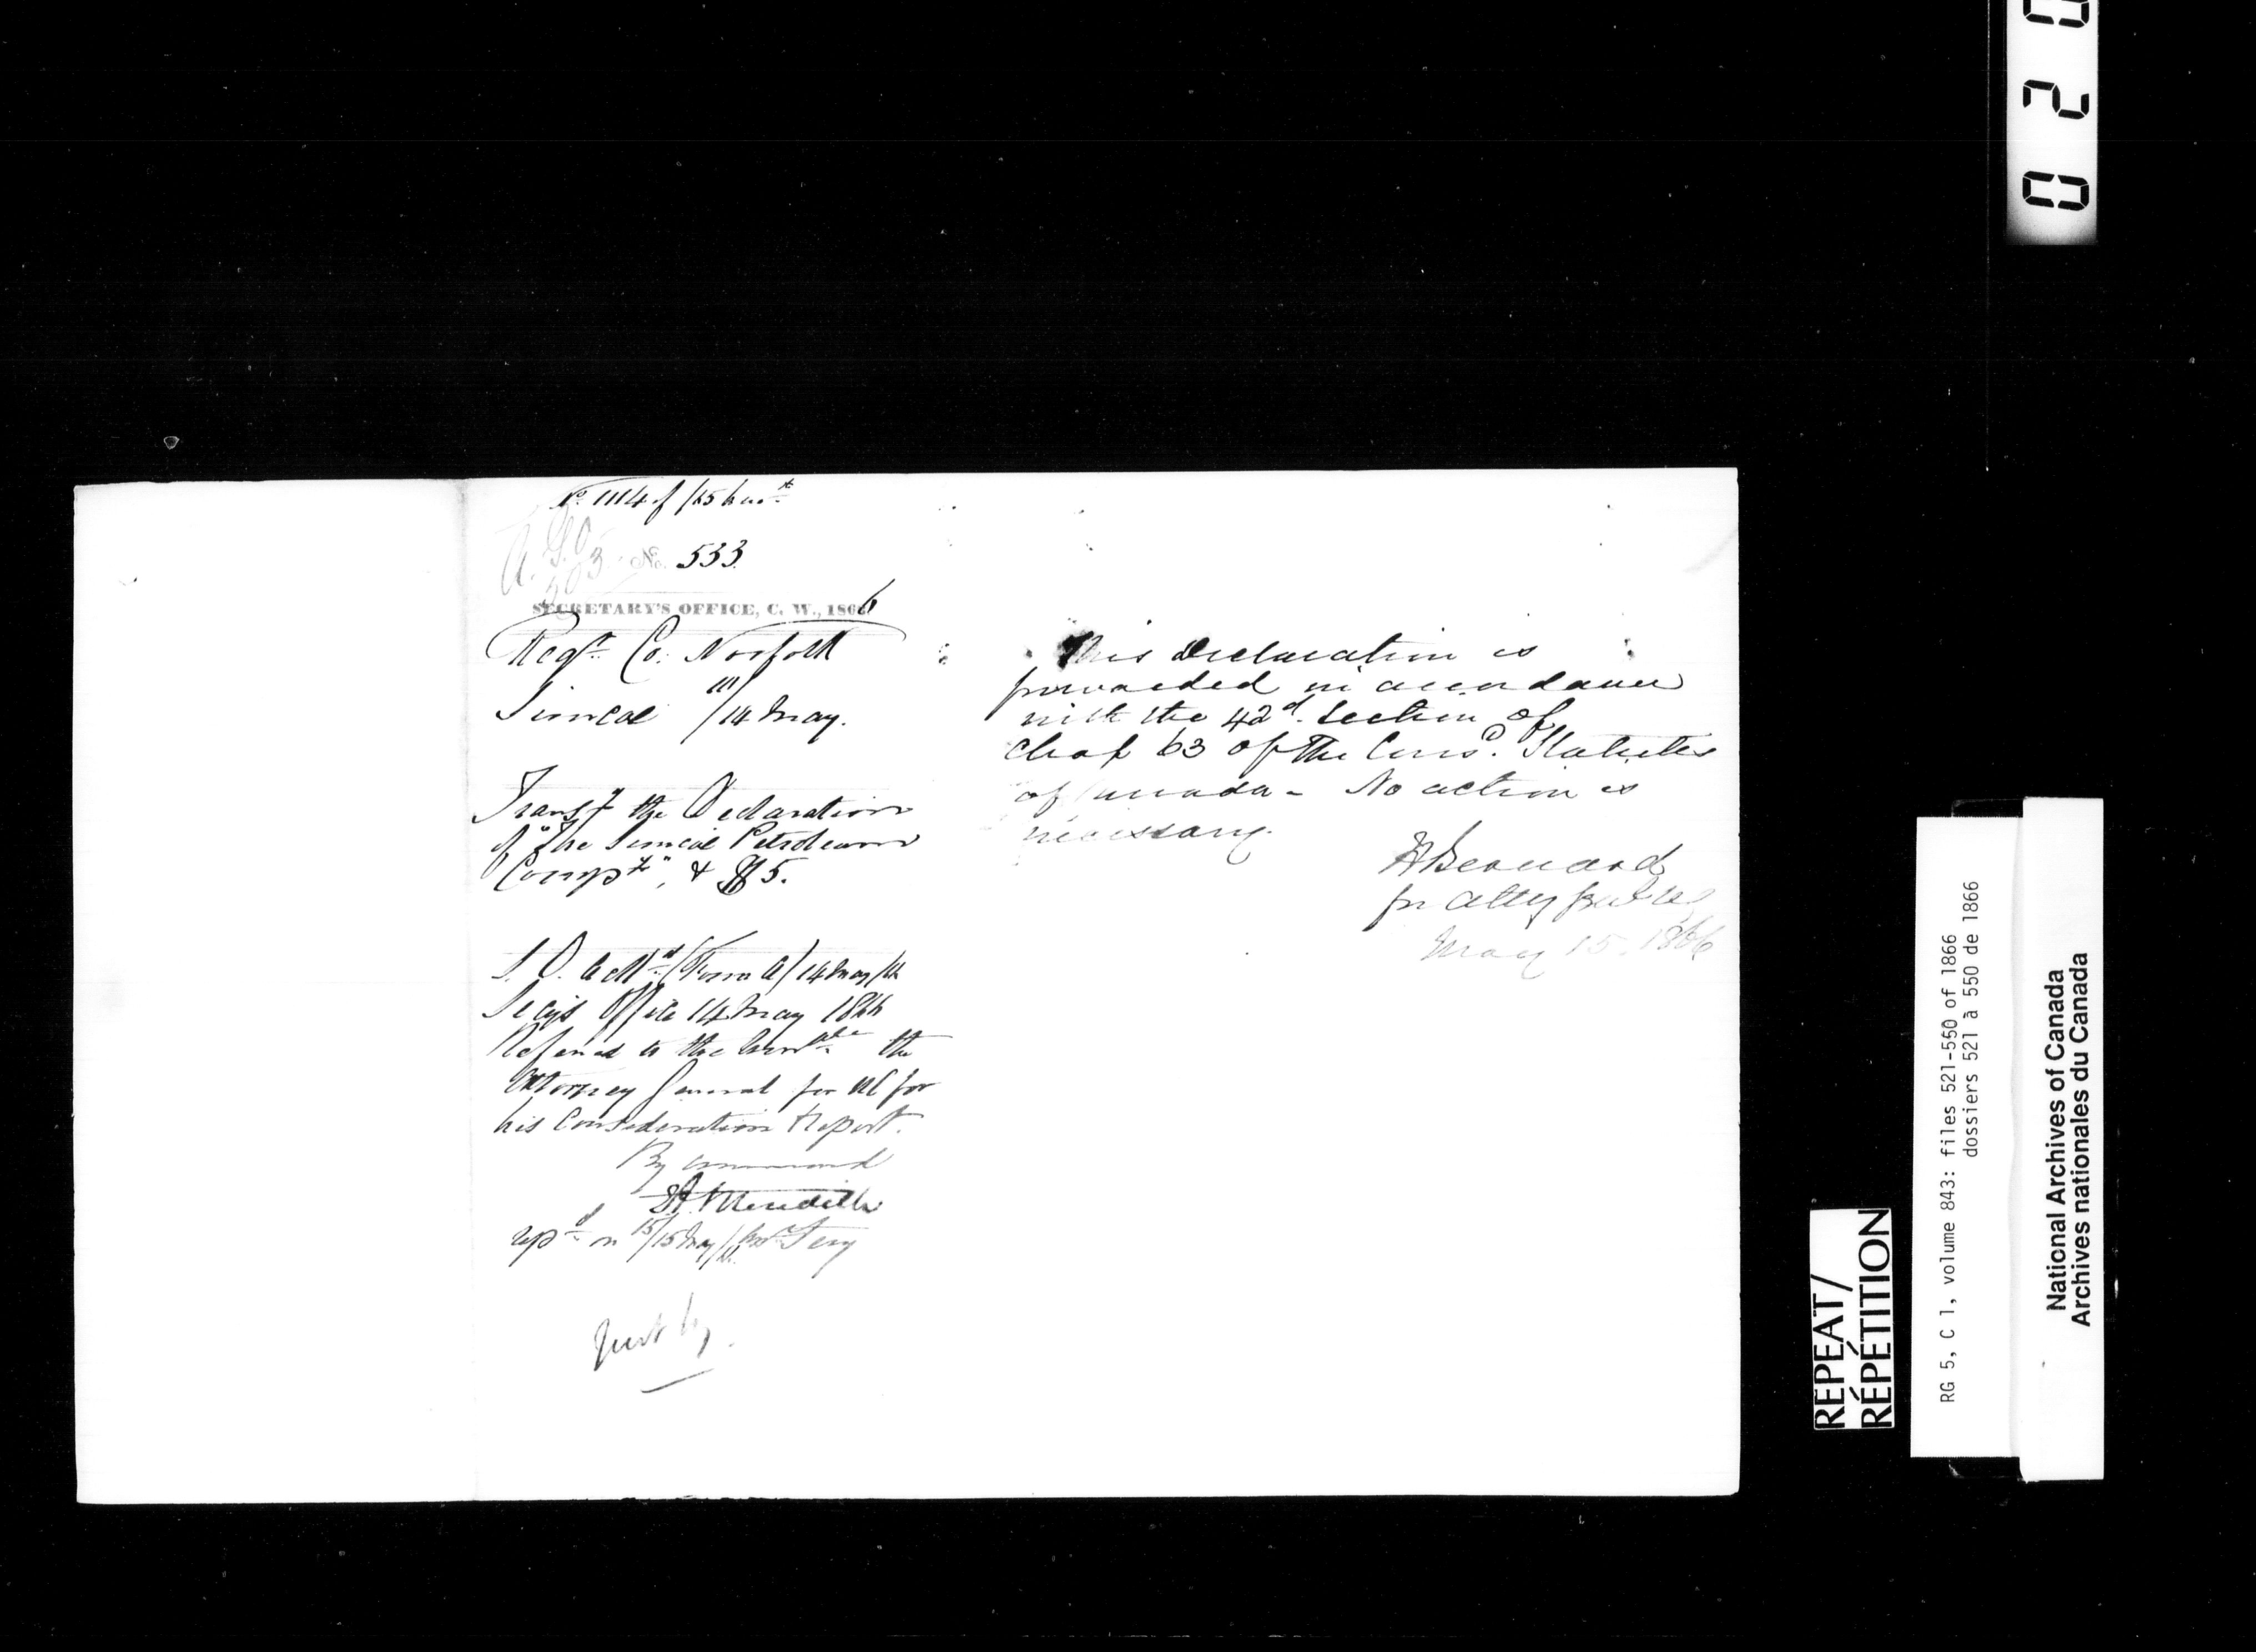 No. 1114 of /65
A. G. O.
503
No. 533.
SECRETARY'S OFFICE, C. W., 1866
Regr. Co. Norfolk
Simcoe /14 May.
Transg the Declaration
of "The Simcoe Petroleum
Compy", & $5.
(Form A) 14 May/66
Secy's Office 14 May 1866
Referred to the Honble the
Attorney General for UC for
his Consideration & Report.
By command
E A Meredith
repd on 15/15 May/66
This Declaration is
forwarded in accordance
with the 42d. Section of
Chap 63 of the Consd. Statutes
of Canada - No action is
necessary.
H Bernard
for Atty Genl UC
May 15. 1866
0 2 0
REPEAT/
RÉPÉTITION
RG 5, C 1, volume 843: files 521-550 of 1866
dossiers 521 à 550 de 1866
National Archives of Canada
Archives nationales du Canada